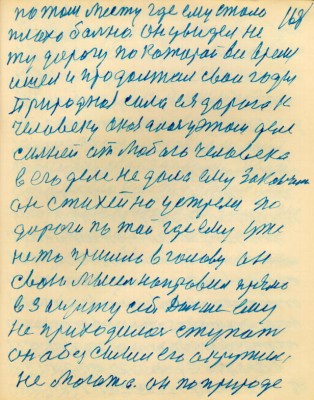 по том месту где ему стало 168
плохо больно он увидел не
ту дорогу по которой он время
имел и продолжал свои годы
Природная сила ея дорога к
человеку оказалась в этом деле
силней от любого человека
в его деле не дала ему закончить
он стихейно устрели по
дороги по той где ему уже
не то пришло в голову он
свою мысел направил прямо
в защиту себ Дальше ему
не приходилося ступат
он обессилил его окружил
не могота. он по природе